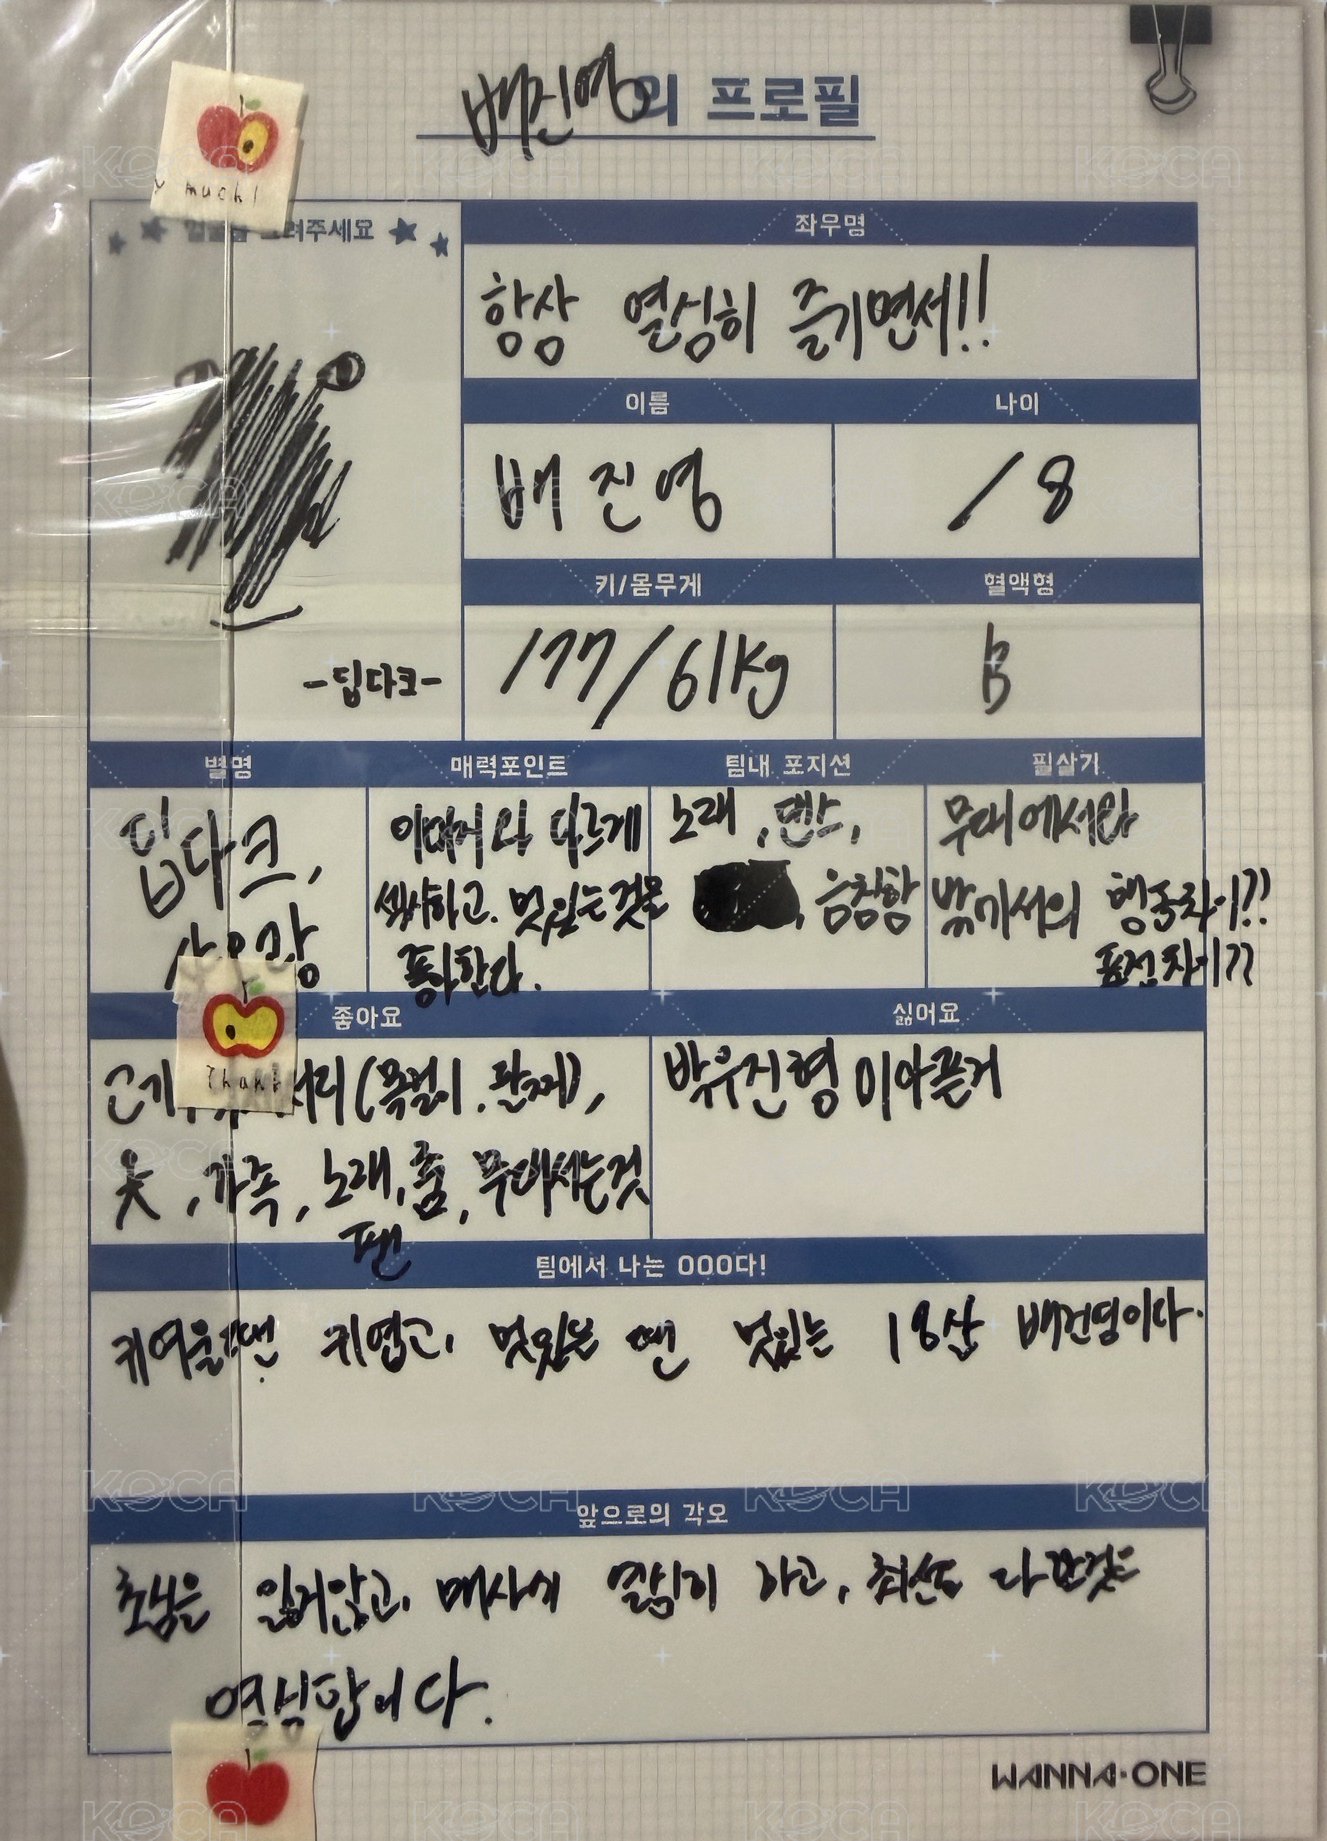 배진영의 프로필
much!
려주세요
좌우명
항상 열심히 즐기면서!!
이름
나이
배진영
18
키/몸무게
혈액형
177/61kg
B
-딥다크-
별명
매력포인트
팀내 포지션
필살기
딥다크,
다르게
섹시하고. 멋있는것을
좋아한다.
노래, 댄스,
음침함
무대에서와
밖에서의 행동차이??
표정차이??
좋아요
싫어요
(목걸이. 팔찌),
옷, 가족, 노래, 춤, 무대서는것
팬
박우진형이아픈거
팀에서 나는 OOO다!
귀여울땐 귀엽고, 멋있을땐 멋있는 18살 배진영이다.
앞으로의 각오
초심을 잃지않고, 매사에 열심히 하고, 최선을 다할것을
맹세합니다.
WANNA·ONE
KOCA